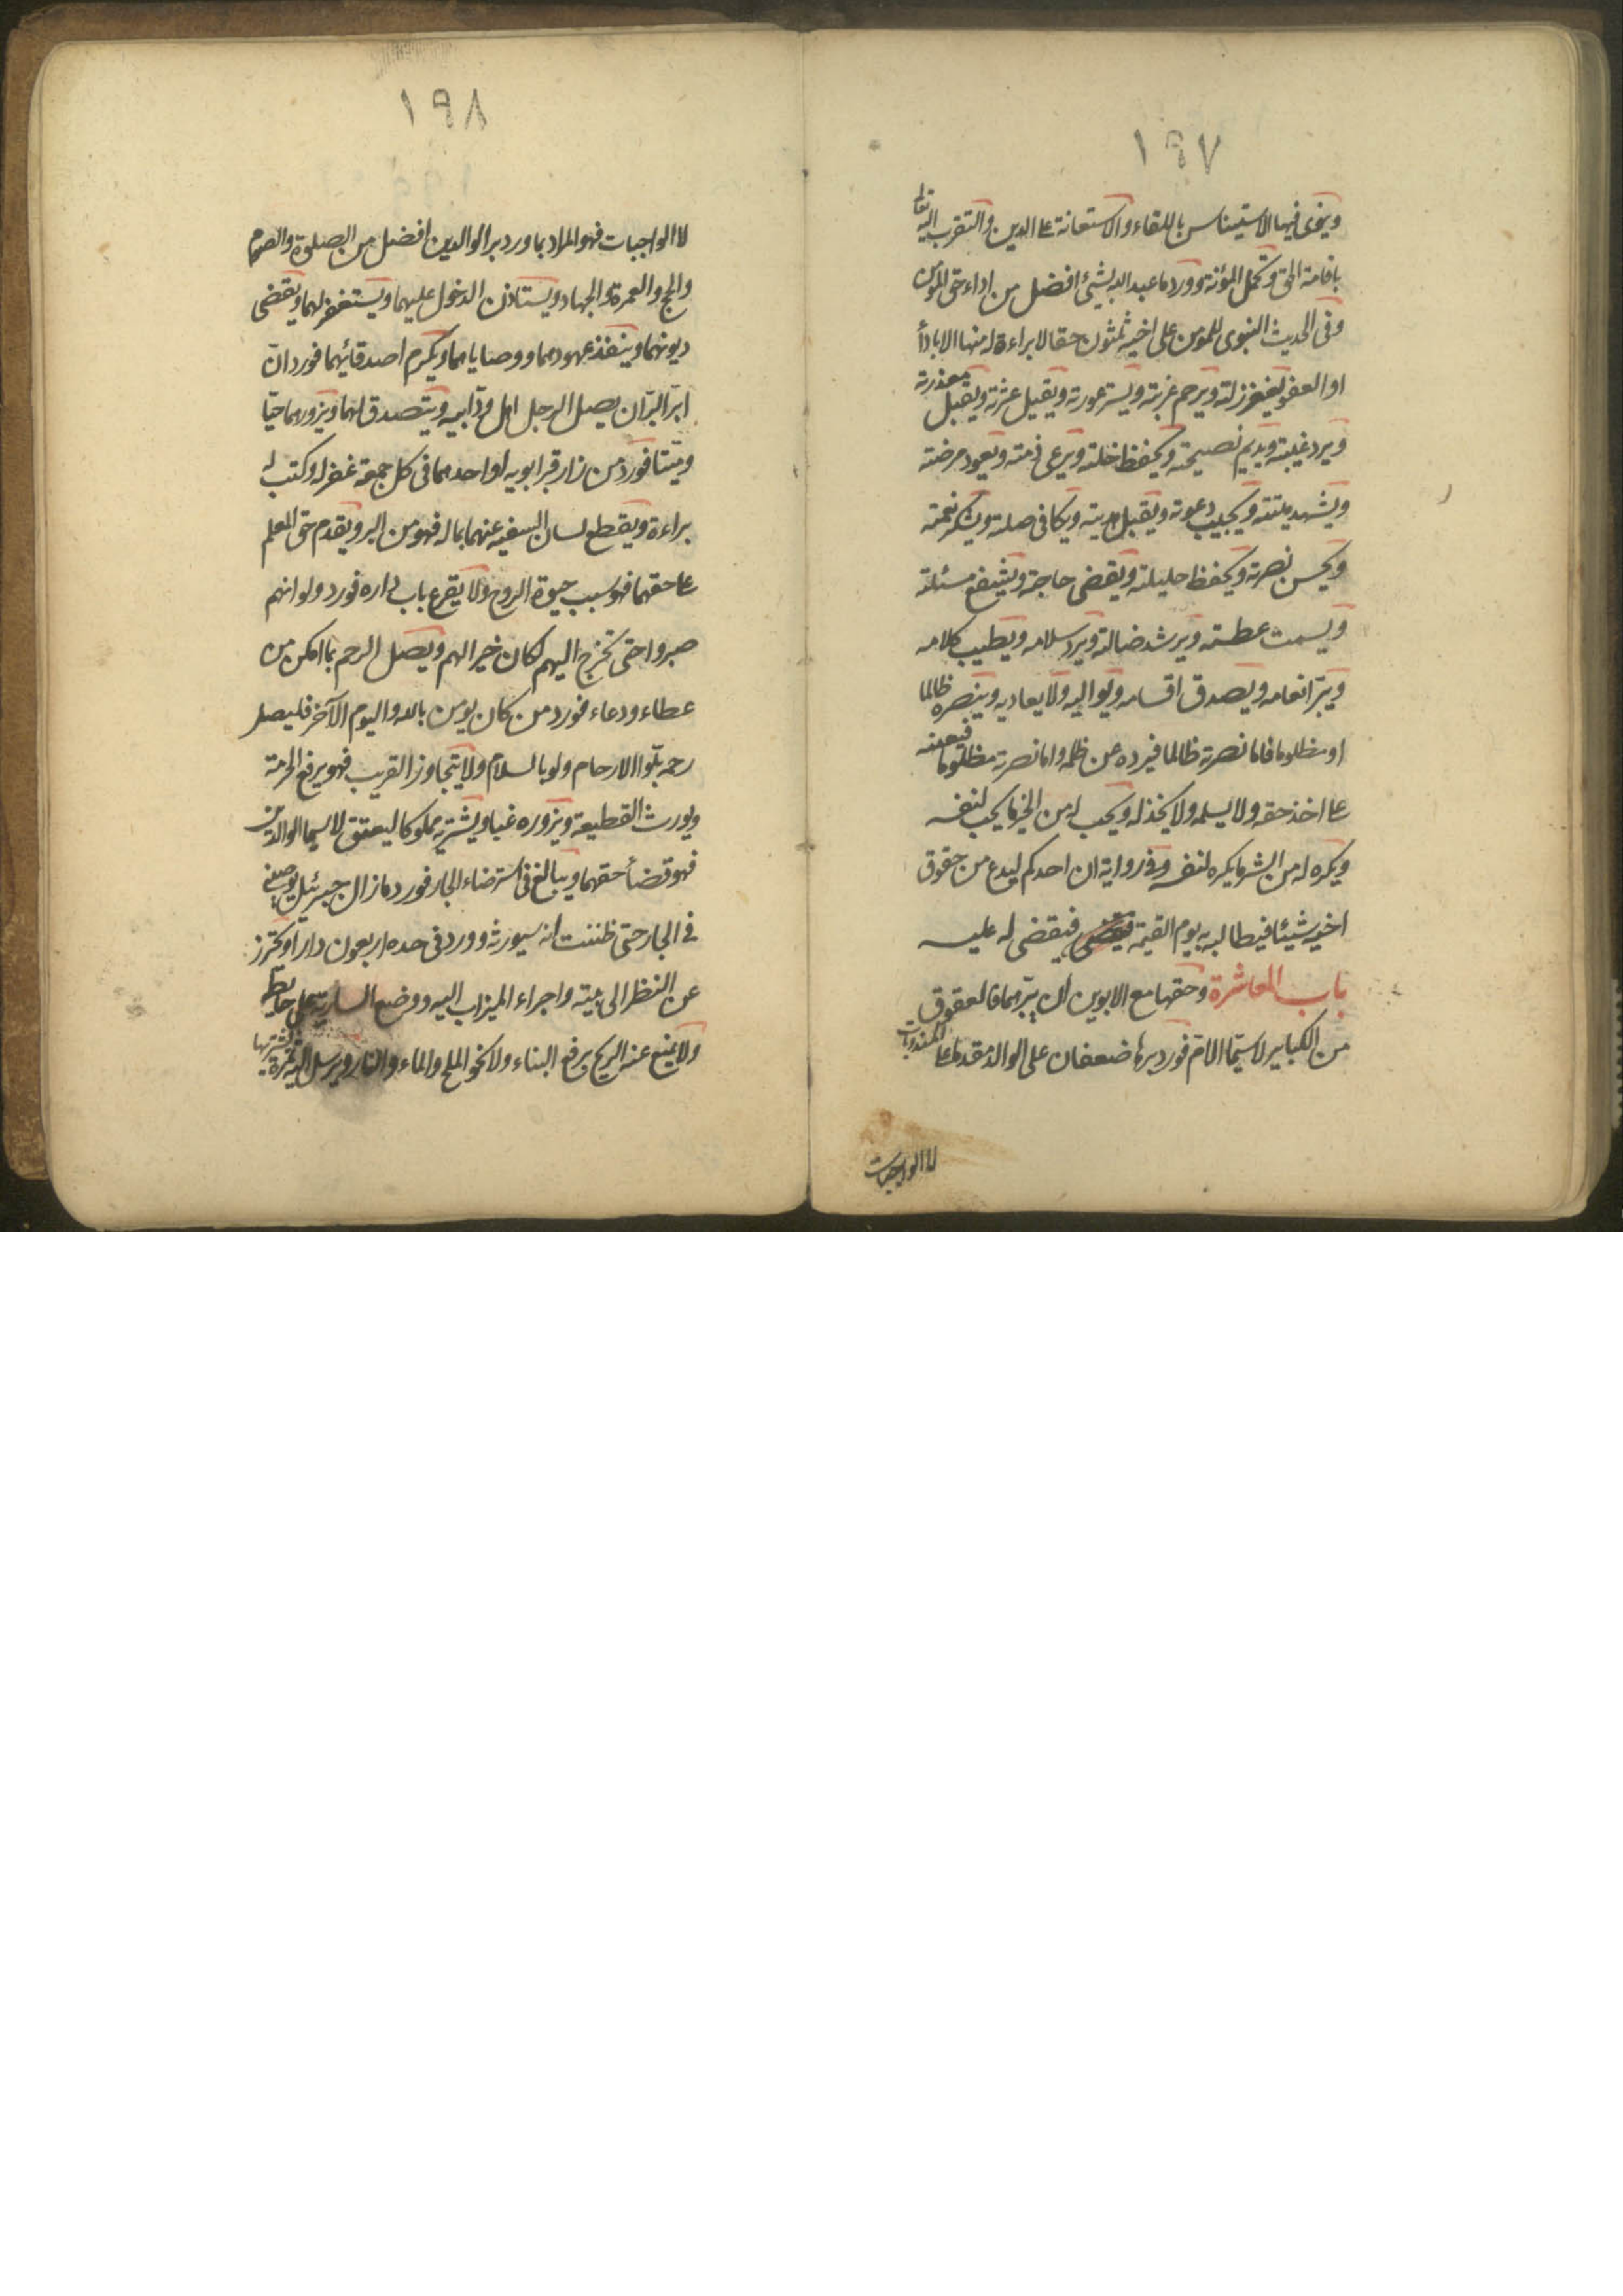 ١٩٧
وينوى فيها الاستيناس باللقاء والاستعانة على الدين والتقرب اليه تعا
باقامة الحق وتحمل المؤنة وورد ما عبد الله بشئ افضل من اداء حق المؤمن
وفى الحديث النبوى للمؤمن على اخيه ثلثون حقا لا براءة له منها الا بادأ
او العفو يغفر زلته ويرحم غربته ويستر عورته ويقيل عثرته ويقبل معذرته
ويرد غيبته ويديم نصيحته ويحفظ خلته ويرعى ذمته ويعود مرضته
ويشهد ميتته ويجيب دعوته ويقبل هديته ويكافى صلته ويشكر نعمته
ويحسن نصرته ويحفظ حليلته ويقضى حاجته ويشفع مسئلته
ويسمت عطسته ويرشد ضالته ويرد سلامه ويطيب كلامه
ويبر انعامه ويصدق اقسامه ويواليه ولا يعاديه وينصره ظالما
او مظلوما فاما نصرته ظالما فيرده عن ظلمه واما نصرته مظلوما فيعينه
على اخذ حقه ولا يسلمه ولا يخذله ويحب له من الخير ما يحب لنفسه
ويكره له من الشر ما يكره لنفسه وفى رواية ان احدكم ليدع من حقوق
اخيه شيئا فيطالبه به يوم القيمة فيقضى له عليه
باب المعاشرة وحقها مع الابوين ان يبرهما فالعقوق
من الكباير لا سيما الام فورد برها ضعفان على الوالد مقدما على المندوبات
لا الواجبات
١٩٨
لا الواجبات فهو المراد بما ورد بر الوالدين افضل من الصلوة والصوم
والحج والعمرة والجهاد ويستاذن الدخول عليهما ويستغفر لهما ويقضى
ديونهما وينفذ عهودهما ووصاياهما ويكرم اصدقائهما فورد ان
ابر البر ان يصل الرجل اهل ود ابيه ويتصدق لهما ويزورهما حيا
وميتا فورد من زار قبر ابويه او احدهما فى كل جمعة غفر له وكتب له
براءة ويقطع لسان السفيه عنهما بماله فهو من البر ويقدم حق المعلم
على حقهما فهو سبب حيوة الروح ولا يقرع باب داره فورد ولو انهم
صبروا حتى تخرج اليهم لكان خيرا لهم ويصل الرحم بما امكن من
عطاء ودعاء فورد من كان يومن بالله واليوم الآخر فليصل
رحمه بلوا الارحام ولو بالسلام ولا يتجاوز القريب فهو يرفع الحرمة
ويورث القطيعة ويزوره غبا ويشتريه مملوكا ليعتق لا سيما الوالدين
فهو قضأ حقهما ويبالغ فى استرضاء الجار فورد ما زال جبرئيل يوصينى
فى الجار حتى ظننت انه سيورثه وورد فى حده اربعون دارا ويحترز
عن النظر الى بيته واجراء الميزاب اليه ووضع السارية على حايطه
ولا يمنع عنه الريح برفع البناء ولا نحو الملح والماء والنار ويرسل اليه ثمرة يشتريها